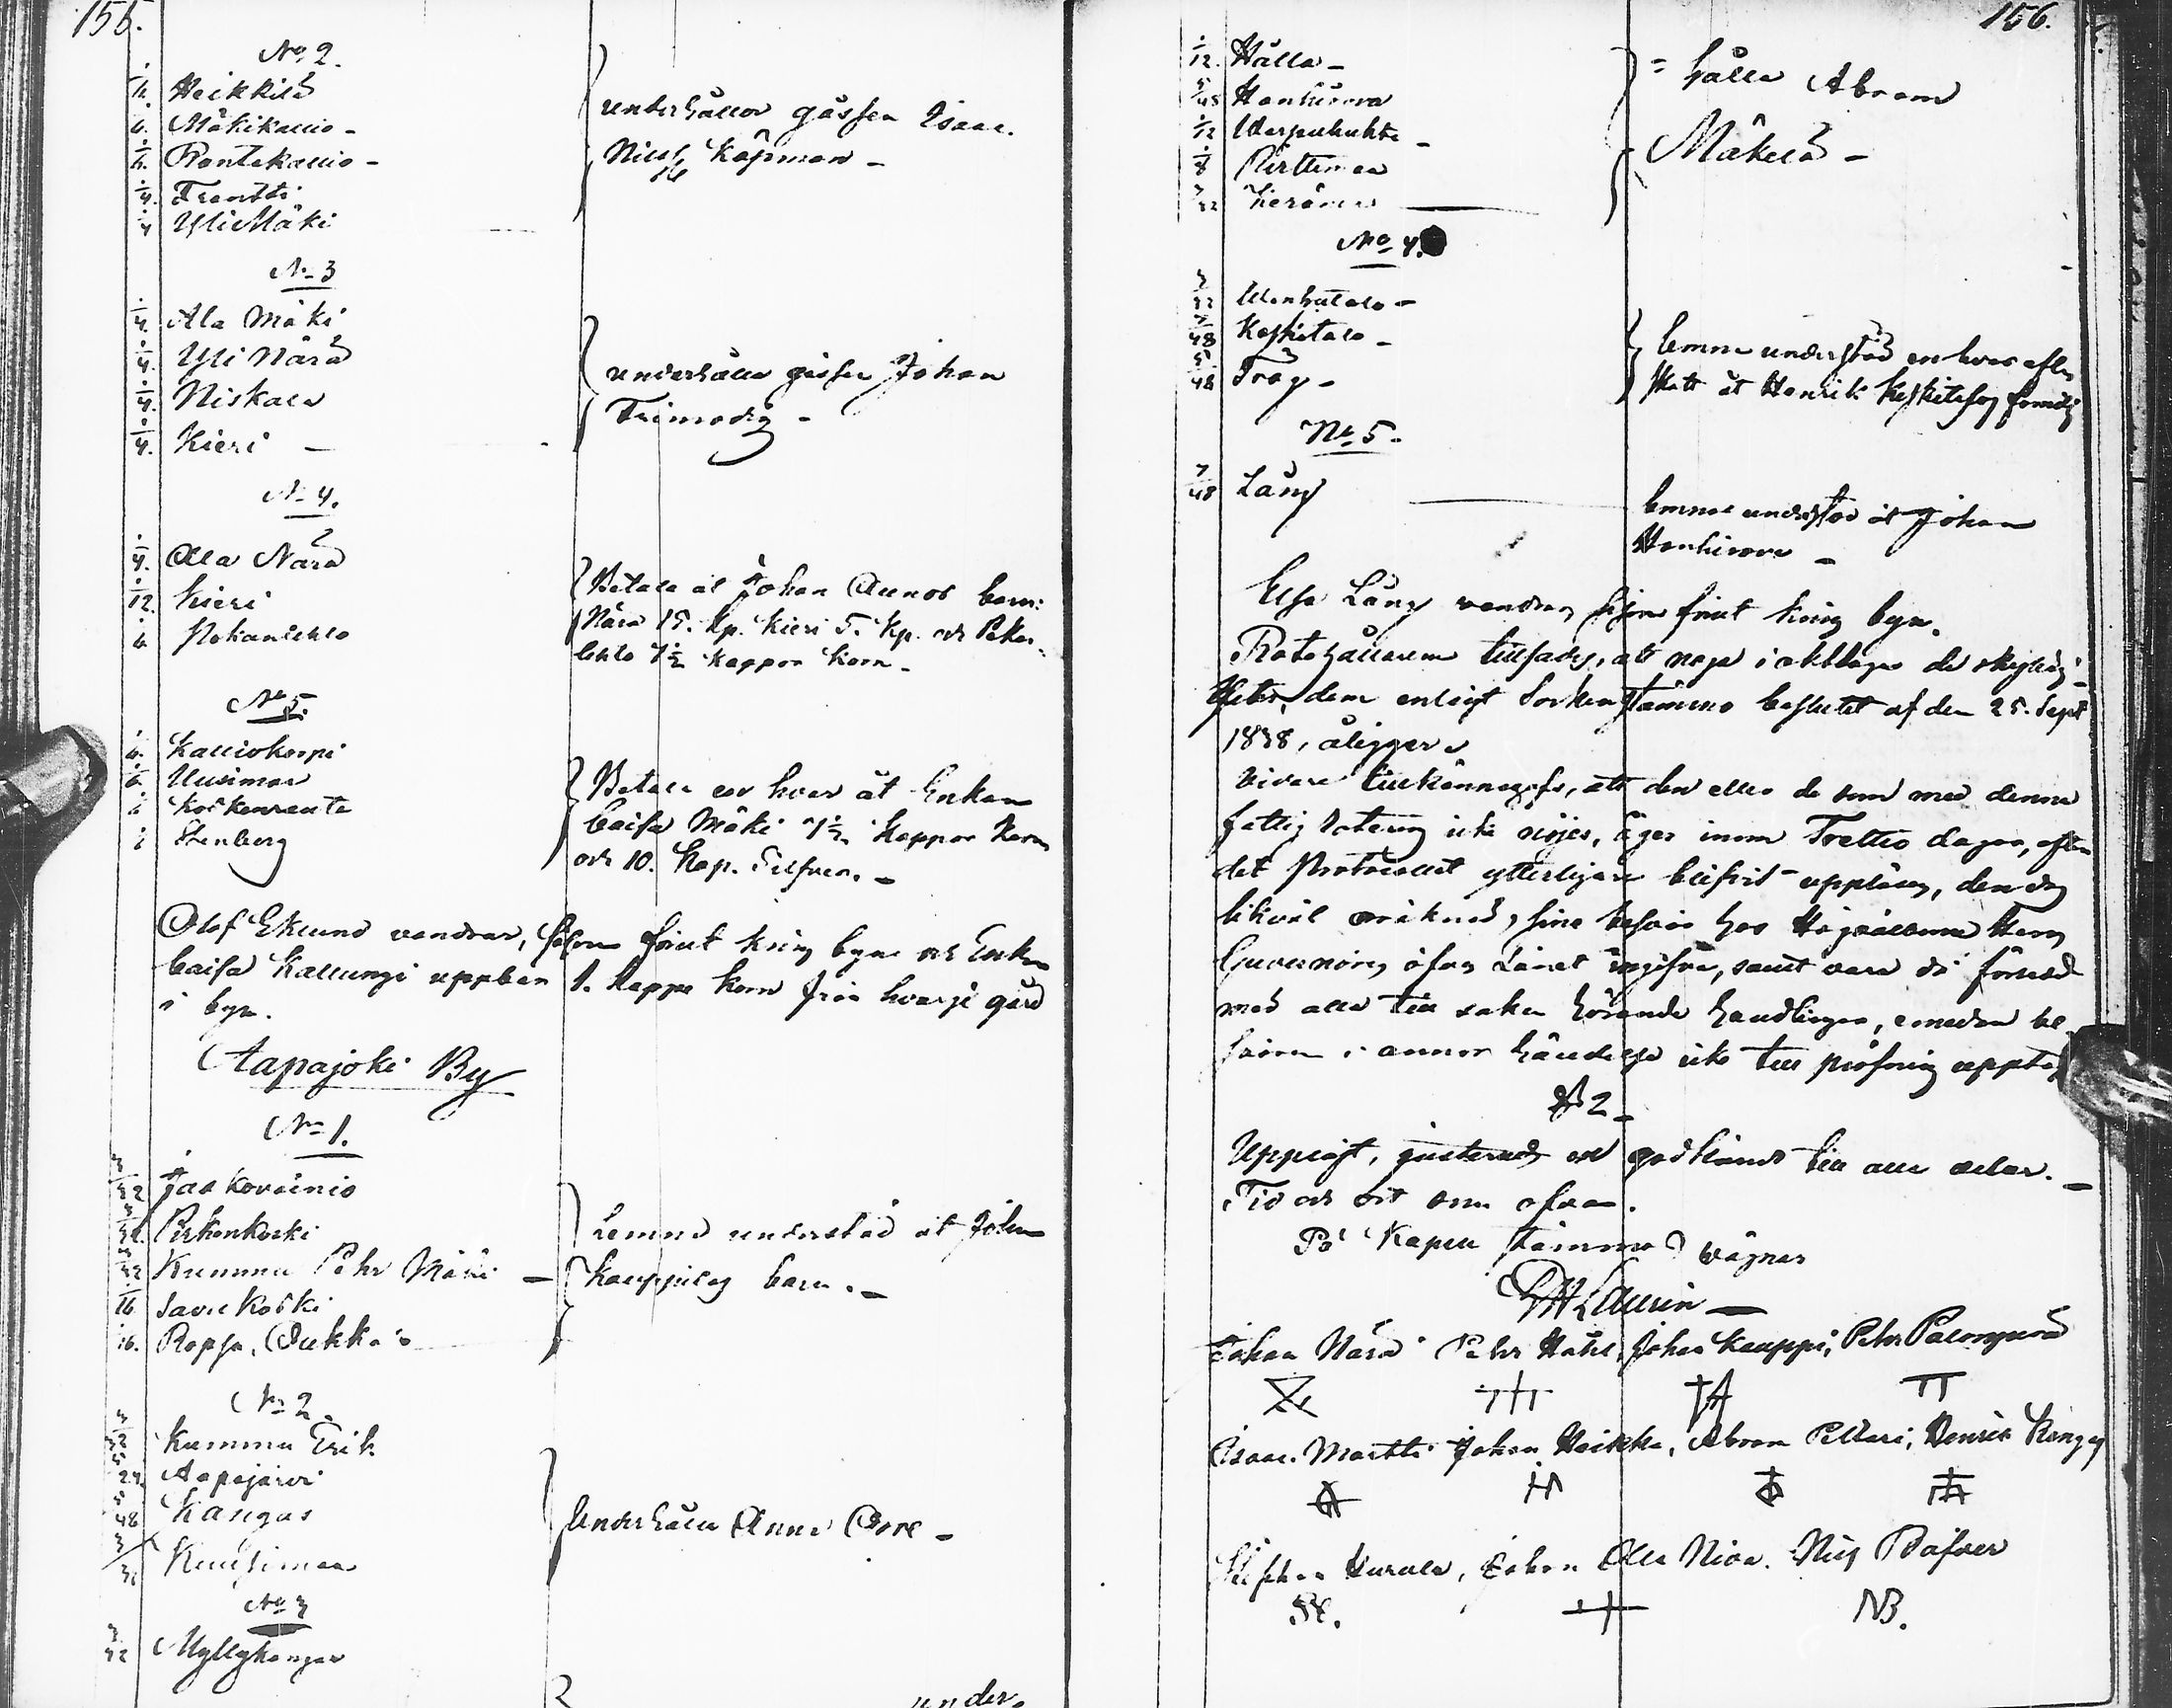 155.
No 2.
Heikkilä
Mäkikallio -
Rantakallio -
Frantti
Yli Mäki
underhåller gåssen Isaac
Nilss Köpman -
No 3
1/4. Ala Mäki
1/4. Yli Närä
1/4. Niskala
1/4. Kieri -
underhålla gåssen Johan
Frimodig -
No 4.
1/4. Alla Närä
1/12. Kieri
Pekanlehto
Betala åt Johan Aunos barn:
Nära 15. Kp. Kieri 5. Kp. och Pekan-
lehto 7½ kappor korn -
No 5.
Kalliokorpi
Uusimaa
Koskenranta
Stenberg
Betala en hvar åt Enkan
Caisa Mäki 7½ kappor korn
och 10. Kop. Silfver. -
Olof Eklund vandrar, såsom förut kring byn och Enkan
Caisa Kallungi uppbär 1. kappe korn från hvarje gård
i byn.
Aapajoki By
No 1.
Jaakovainio
Pirkonkoski
Kummu Pehr Mäki -
Savukoski
Ropsa, Outakka
Lemna understöd åt Johan
Kauppilas barn. -
No 2.
Kummu Erik
Aapajärvi
Kangas
Kuusimaa
Underhålla Anna -
No 3
Myllykangas
under-
156.
1/12. Hålla -
5/48 Hankivaara
1/12 -
1/8 Pirttimaa
Keränen
= hålla Abram
Mäkelä -
No 4.
Wanhatalo -
7/48 Keskitalo -
5/48 Tråg -
Lemna understöd en hvar efter
skatt åt Henrik Keskitalos familj
No 5.
7/48 Lång
Lemna understöd åt Johan
Hankivaara -
Elsa Lång vandrar såsom förut kring byn.
Rotehållarena tillsades, att noga iakttaga de skyldig-
heter, dem enligt Sockenstämmo beslutet af den 25. Sept
1838, åligger.
Vidare tillkännagafs, att den eller de som med denna
fattig rotering icke nöjes, äger inom Trettio dagar, efter
det Protocollet ytterligare blifvit uppläst, den dag
likväl oräknad, sina besvär hos Högvälborne Herr
Guvernören öfver Länet ingifva, samt vara då försedd
med alla till saken hörande handlingar, emedan be-
svären i annor händelse icke till pröfning upptas
§ 2 -
Uppläst, justerad och godkänd till alla delar. -
Tid och ort som ofvan.
På Kapell stämmans vägnar
Laurin -
Johan Närä Pehr Hahl, Johan Kauppi, Pehr Palonperä
Isaac Martti Johan Heikka, Abram Pellari, Henric Kangas
Stephan Hurula, Johan Alla Niva. Nils Båfver
SH.
NB.